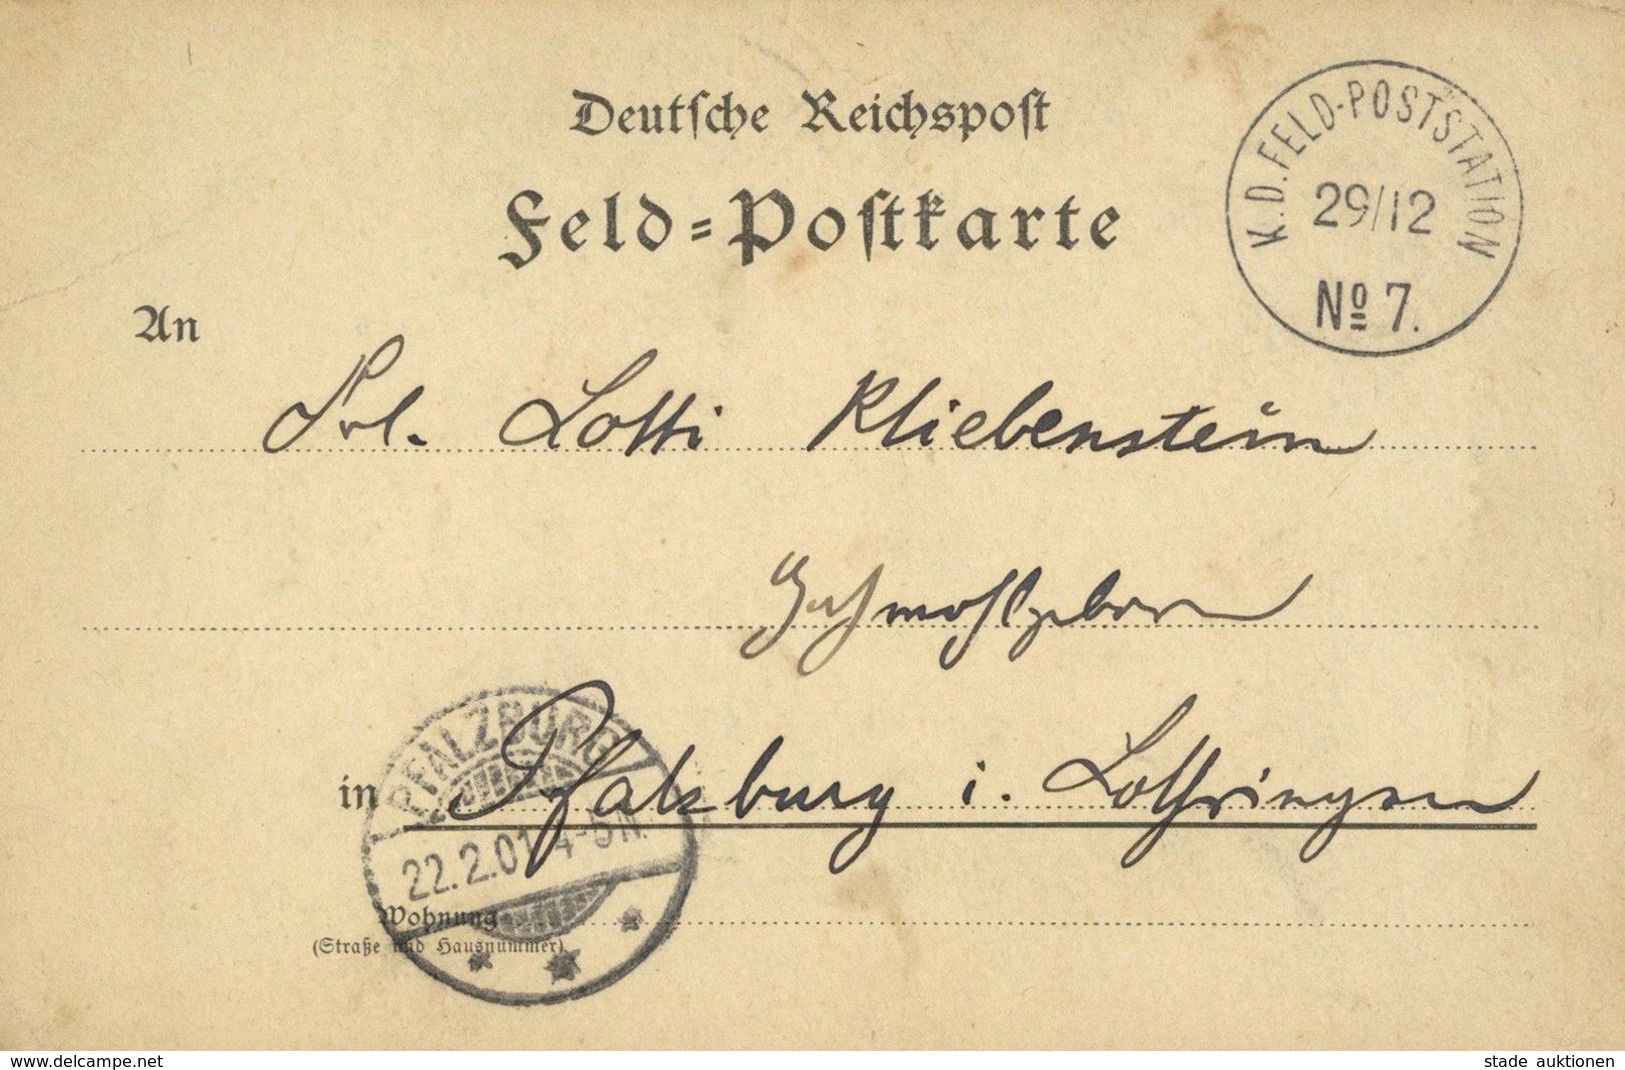 Deutsche Reichspost
Feld-Postkarte
K.D. FELD-POSTSTATION
29/12
No 7.
An
Frl. Lotti Kliebenstein
Hochwohlgeboren
PFALZBURG
in Pfalzburg i. Lothringen
22.2.01 4-5 N.
Wohnung
(Straße und Hausnummer)
www.delcampe.net
stade auktionen